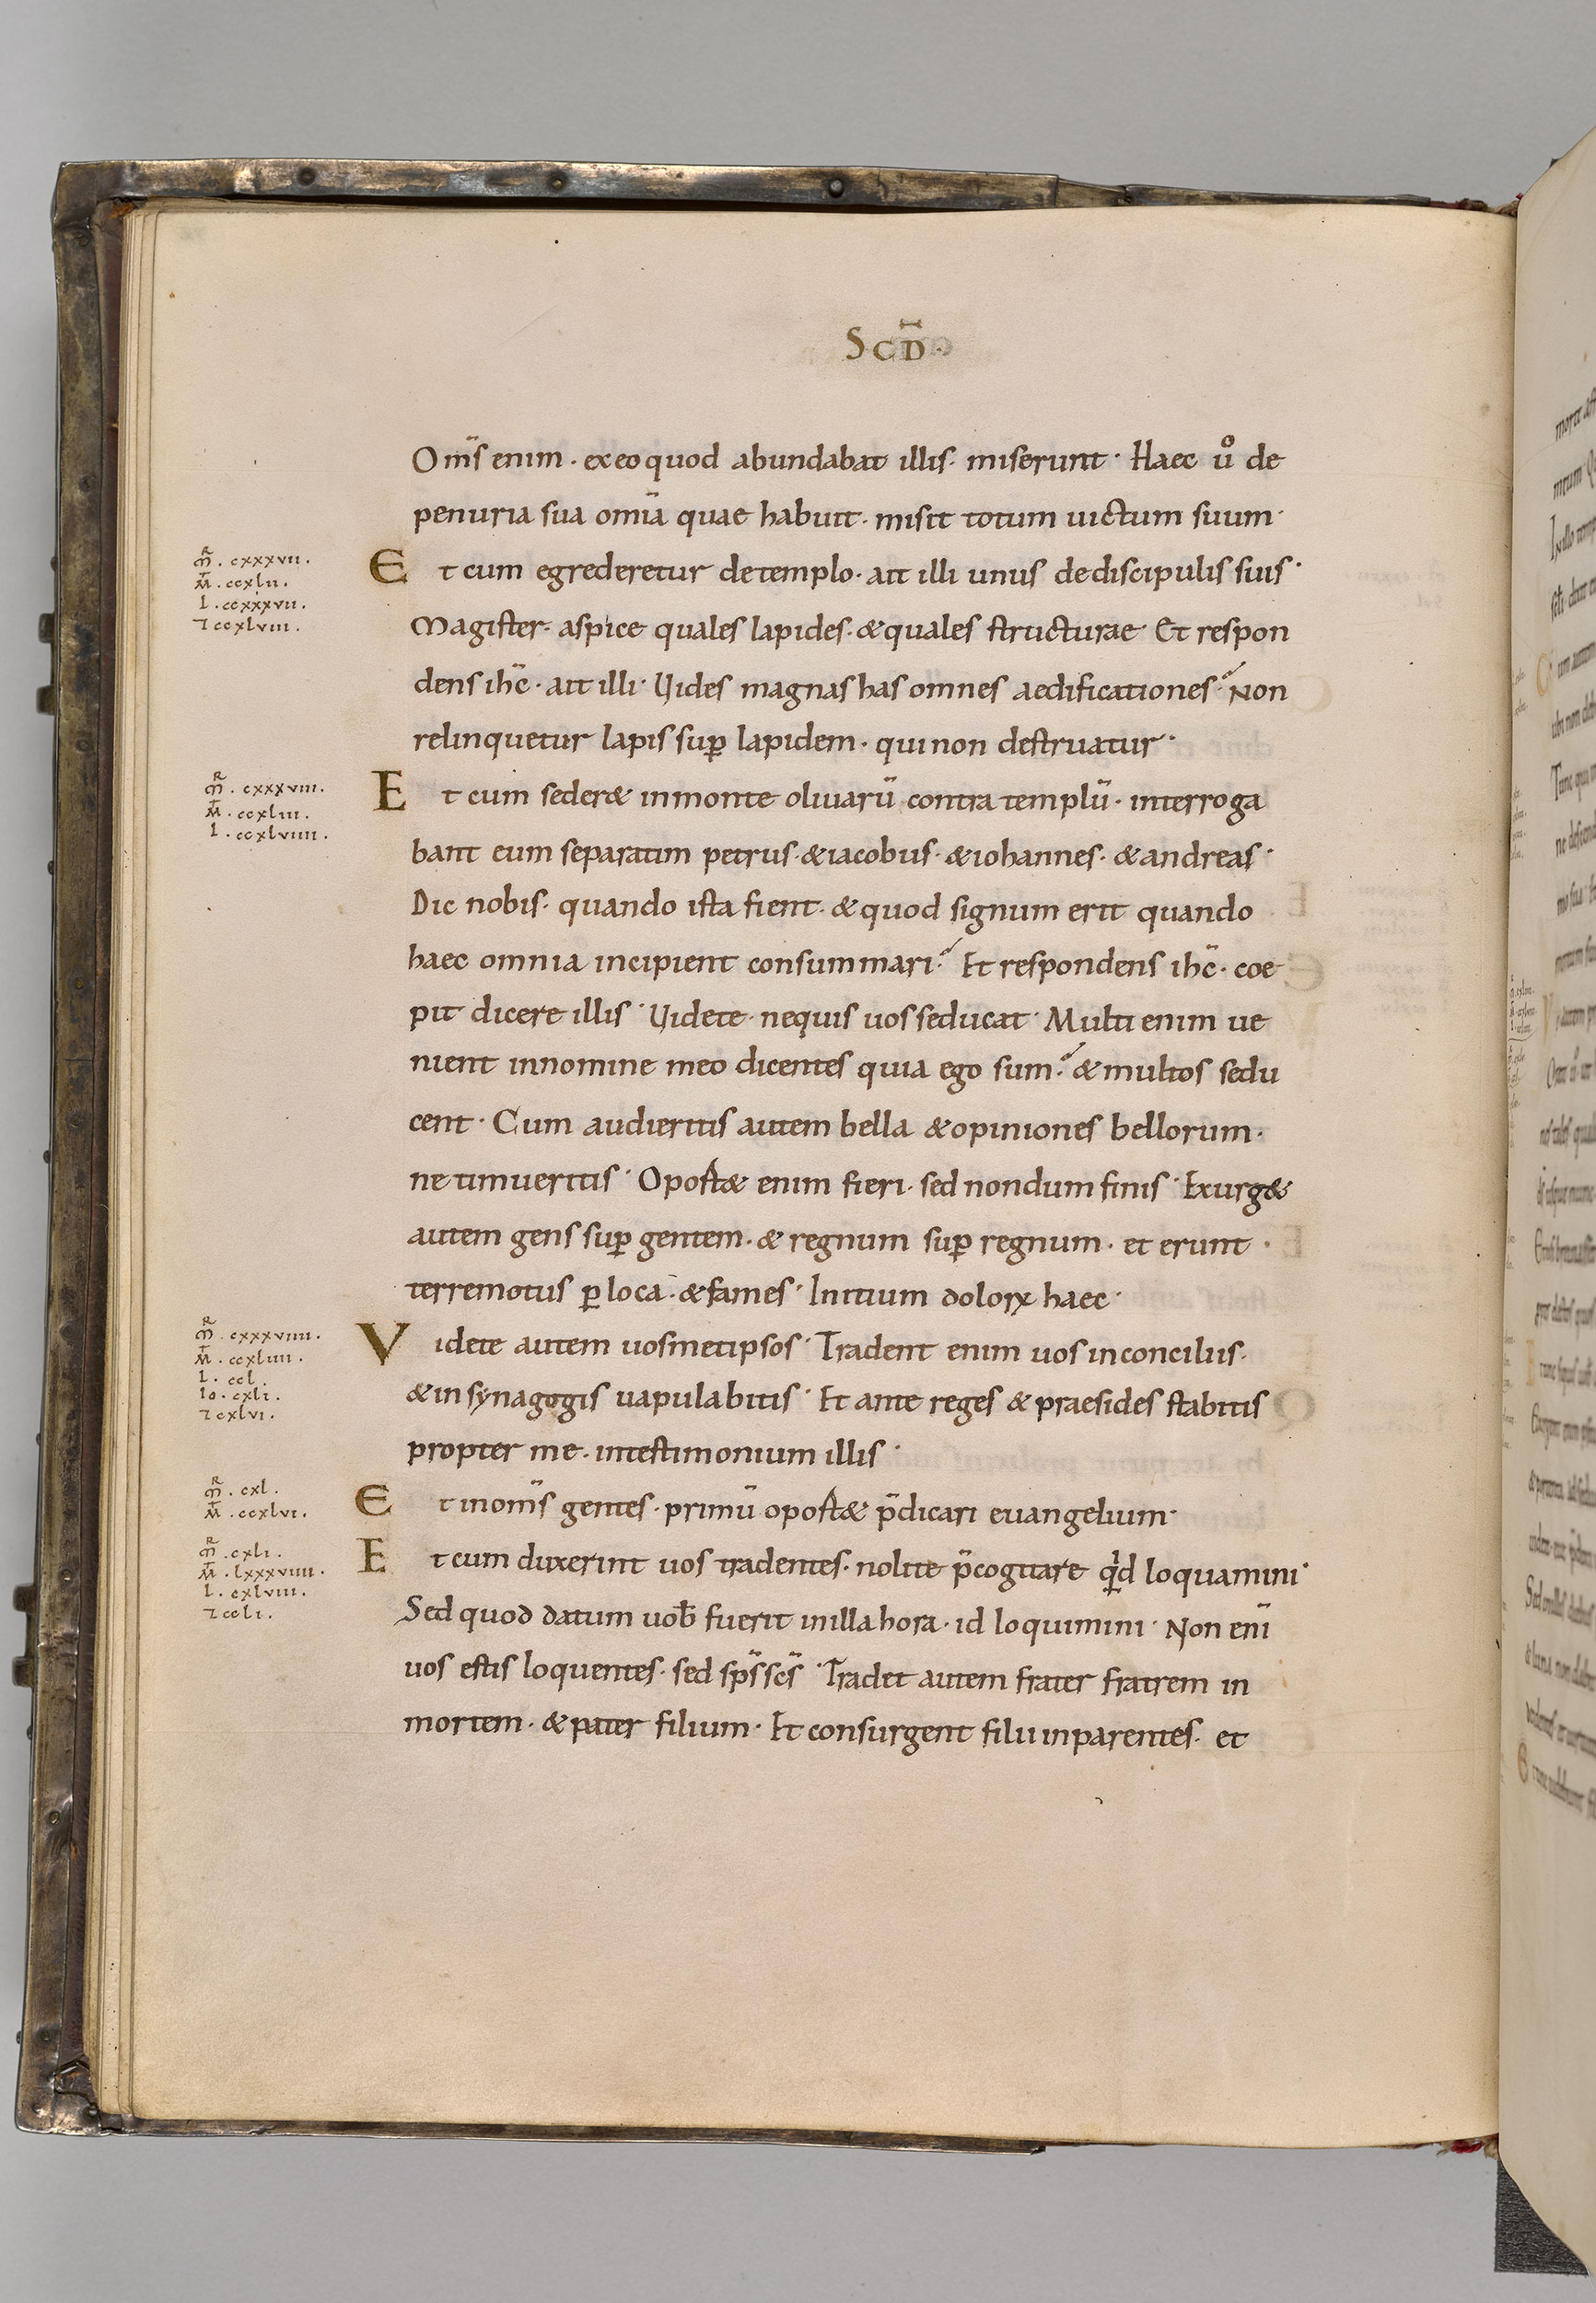 SCD̅·
Om̅s enim · exeo quod abundabat illis · miserunt · Haec uͦ de
penuria sua omīa quae habuit · misit totum uictum suum ·
m̅ʀ · cxxxvii ·
m̅ · ccxlii ·
l · ccxxxvii ·
⁊ ccxlviii ·
Et cum egrederetur detemplo · ait illi unus dediscipulis suis ·
Magister · aspice quales lapides · &quales structurae Et respon
dens ihc̅ · ait illi · Uides magnas has omnes aedificationes · Non
relinquetur lapis sup̅ lapidem · qui non destruatur ·
m̅ʀ · cxxxviii ·
m̅ · ccxliii ·
l · ccxlviiii ·
Et cum seder& inmonte oliuarū contra templū · interroga
bant eum separatim petrus · &iacobus · &iohannes · &andreas ·
Dic nobis · quando ista fient · & quod signum erit quando
haec omnia incipient consummari · Et respondens ihc̅ · coe
pit dicere illis · Uidete · nequis uos seducat · Multi enim ue
nient innomine meo dicentes quia ego sum · & multos sedu
cent · Cum audieritis autem bella &opiniones bellorum ·
ne timueritis · Oport& enim fieri · sed nondum finis · Exurg&
autem gens sup̅ gentem · & regnum sup̅ regnum · et erunt ·
terremotus ꝑ loca · &fames · Initium dolorꝝ haec ·
m̅ʀ · cxxxviiii ·
m̅ · ccxliiii ·
l · ccl ·
io · cxli ·
⁊ cxlvi ·
Videte autem uosmetipsos · Tradent enim uos inconciliis ·
&in synagogis uapulabitis · Et ante reges & praesides stabitis
propter me · intestimonium illis ·
m̅ʀ · cxl ·
m̅ · ccxlvi ·
Et inom̅s gentes · primū oport& p̅dicari euangelium ·
m̅ʀ · cxli ·
m̅ · lxxxviiii ·
l · cxlviii ·
⁊ ccli ·
Et cum duxerint uos tradentes · nolite p̅cogitare qͥd loquamini ·
Sed quod datum uob̅ fuerit inilla hora · id loquimini · Non enī
uos estis loquentes · sed sps̅ scs̅ · Tradet autem frater fratrem in
mortem · & pater filium · Et consurgent filii inparentes · et